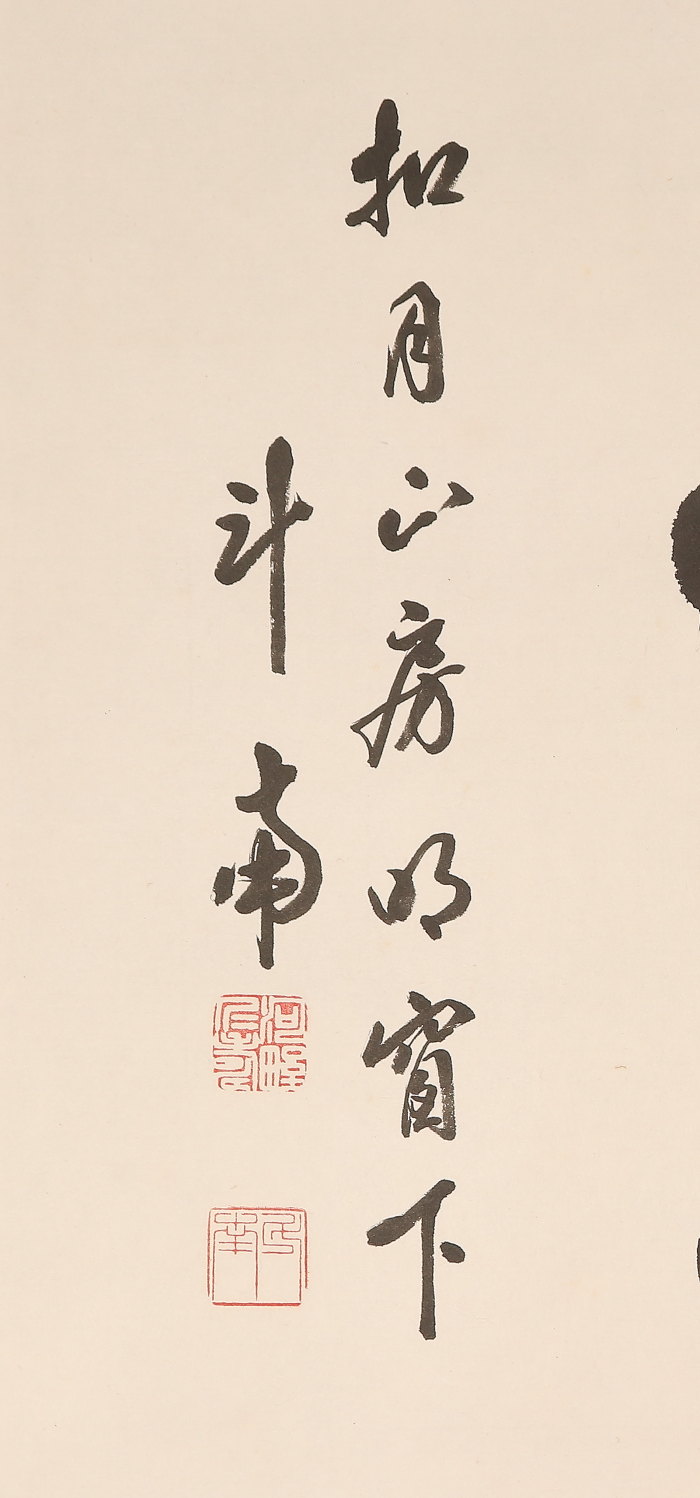 扣月山房明窗下
斗南